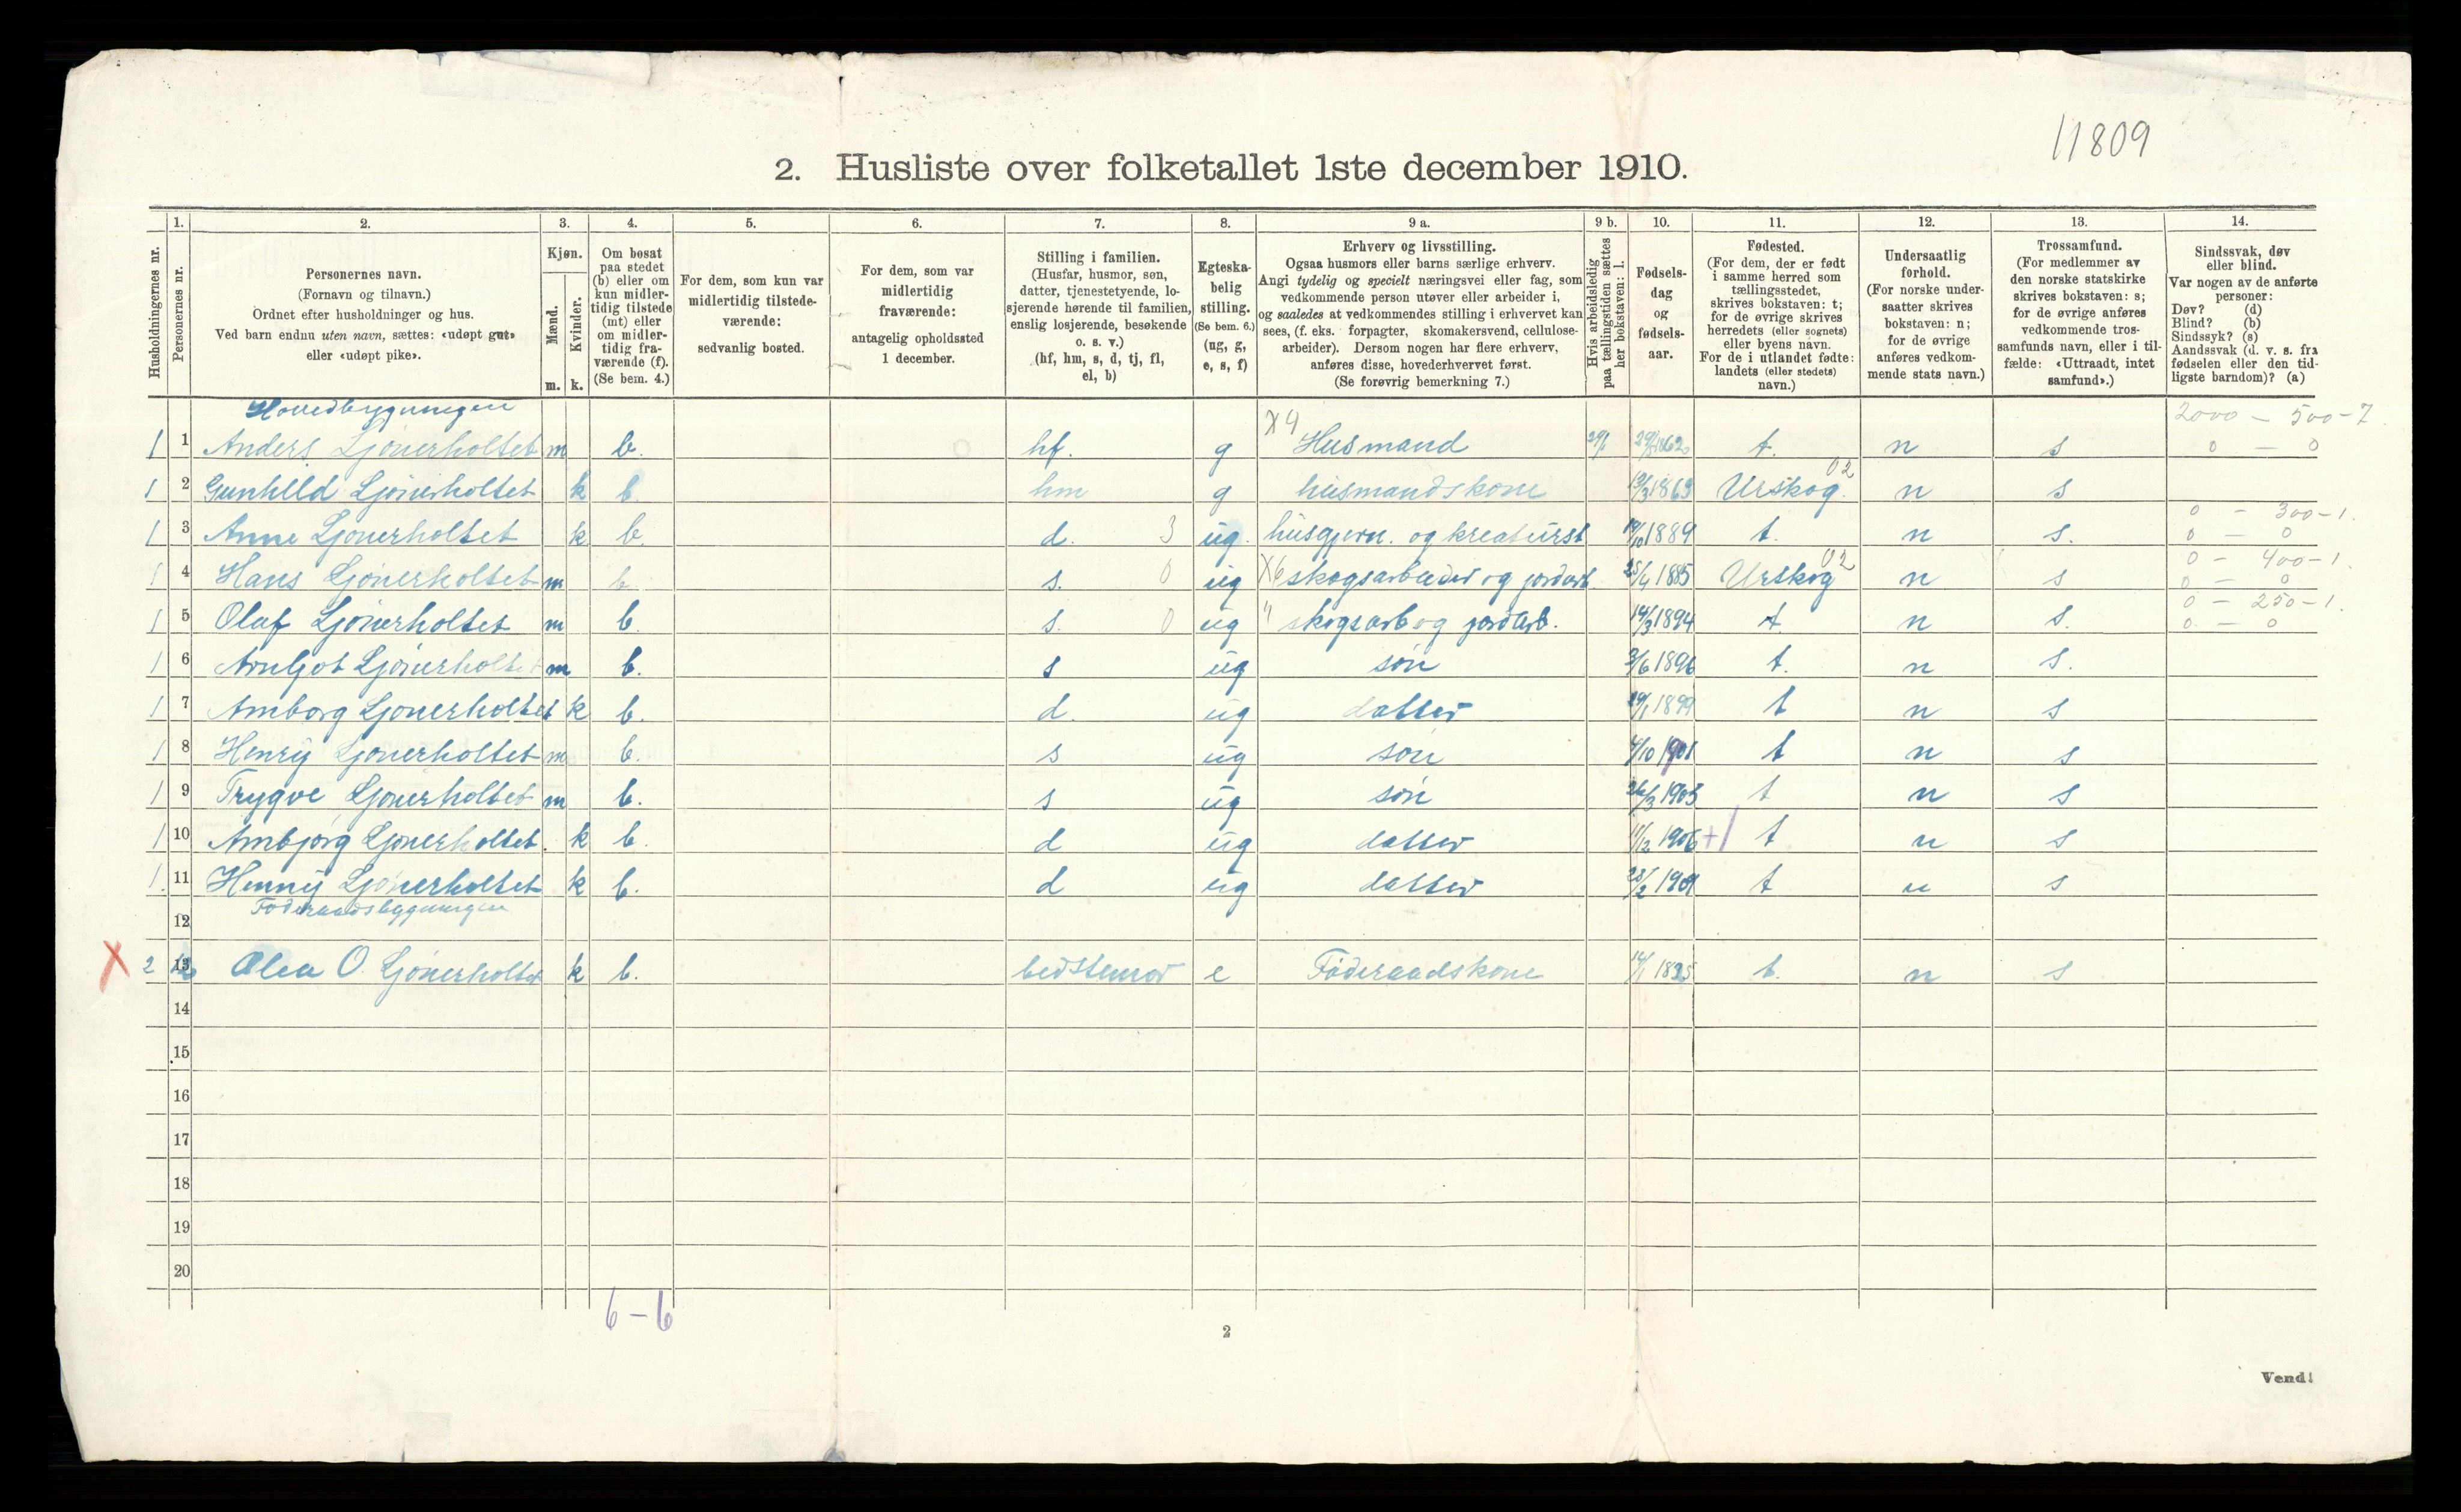 11809
2. Husliste over folketallet 1ste december 1910.
Husholdningernes nr.
1.
Personernes nr.
2.
Personernes navn.
(Fornavn og tilnavn.)
Ordnet efter husholdninger og hus.
Ved barn endnu uten navn, sættes: «udøpt gut»
eller «udøpt pike».
3.
Kjøn.
Mænd.
Kvinder.
m. k.
4.
Om bosat
paa stedet
(b) eller om
kun midler-
tidig tilstede
(mt) eller
om midler-
tidig fra-
værende (f).
(Se bem. 4.)
5.
For dem, som kun var
midlertidig tilstede-
værende:
sedvanlig bosted.
6.
For dem, som var
midlertidig
fraværende:
antagelig opholdssted
1 december.
7.
Stilling i familien.
(Husfar, husmor, søn,
datter, tjenestetyende, lo-
sjerende hørende til familien,
enslig losjerende, besøkende
o. s. v.)
(hf, hm, s, d, tj, fl,
el, b)
8.
Egteska-
belig
stilling.
(Se bem. 6.)
(ug, g,
e, s, f)
9 a.
Erhverv og livsstilling.
Ogsaa husmors eller barns særlige erhverv.
Angi tydelig og specielt næringsvei eller fag, som
vedkommende person utøver eller arbeider i,
og saaledes at vedkommendes stilling i erhvervet kan
sees, (f. eks. forpagter, skomakersvend, cellulose-
arbeider). Dersom nogen har flere erhverv,
anføres disse, hovederhvervet først.
(Se forøvrig bemerkning 7.)
9 b.
Hvis arbeidsledig
paa tællingstiden sættes
her bokstaven: l.
10.
Fødsels-
dag
og
fødsels-
aar.
11.
Fødested.
(For dem, der er født
i samme herred som
tællingsstedet,
skrives bokstaven: t;
for de øvrige skrives
herredets (eller sognets)
eller byens navn.
For de i utlandet fødte:
landets (eller stedets)
navn.)
12.
Undersaatlig
forhold.
(For norske under-
saatter skrives
bokstaven: n;
for de øvrige
anføres vedkom-
mende stats navn.)
13.
Trossamfund.
(For medlemmer av
den norske statskirke
skrives bokstaven: s;
for de øvrige anføres
vedkommende tros-
samfunds navn, eller i til-
fælde: «Uttraadt, intet
samfund».)
14.
Sindssvak, døv
eller blind.
Var nogen av de anførte
personer:
Døv? (d)
Blind? (b)
Sindssyk? (s)
Aandssvak (d. v. s. fra
fødselen eller den tid-
ligste barndom)? (a)
Hovedbygningen
2000 - 500-7
1 1 Anders Ljönerholtet m b. hf. g X4 Husmand t. n s 0 - 0
1 2 Gunhild Ljönerholtet k b hm g husmandskone 13/3 1863 Urskog. 02 n s
0 - 300-1.
1 3 Anne Ljönerholtet k b. d. 3 ug. husgjern. og kreaturst 19/10 1889 t. n s. 0 - 0
0 - 400-1.
1 4 Hans Ljönerholtet m b. s. 0 ug X6 skogsarbeider og jordarb. 25/4 1885 Urskog 02 n s 0 - 0
0 - 250-1.
1 5 Olaf Ljönerholtet m b. s. 0 ug " skogsarb og jordarb. 14/3 1894 t. n s. 0 - 0
1 6 Arnljot Ljönerholtet m b. s ug sön 3/6 1896 t. n s.
1 7 Amborg Ljönerholtet k b. d. ug datter 29/1 1899 t n s
1 8 Henry Ljönerholtet m b. s ug sön 4/10 1901 t n s
1 9 Trygve Ljönerholtet m b. s ug sön 26/3 1903 t n s
1 10 Ambjörg Ljönerholtet. k b. d ug datter 11/12 1906 +1 t n s
1. 11 Henny Ljönerholtet k b. d ug datter 28/2 1909 t n s
Föderaadsbygningen
12
X 2 13 Olea O. Ljönerholtet k b. bedstemor e Föderaadskone 14/1 1825 t. n s
14
15
16
17
18
19
20
6-6
2
Vend!